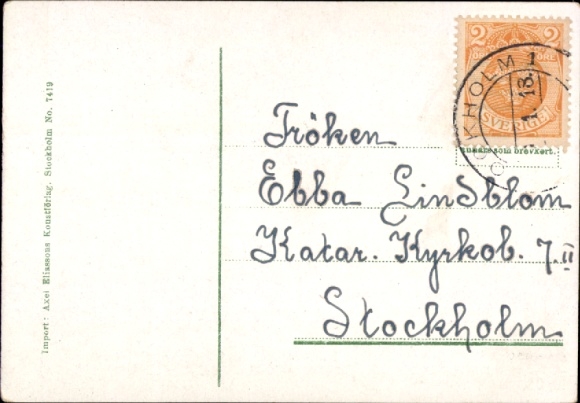 Import: Axel Eliassons Konstförlag, Stockholm No. 7419
2 2
ÖRE
SVERIGE
STOCKHOLM 1
1. 13.
som brevkort.
Fröken
Ebba Lindblom
Katar. Kyrkob. 7 II
Stockholm